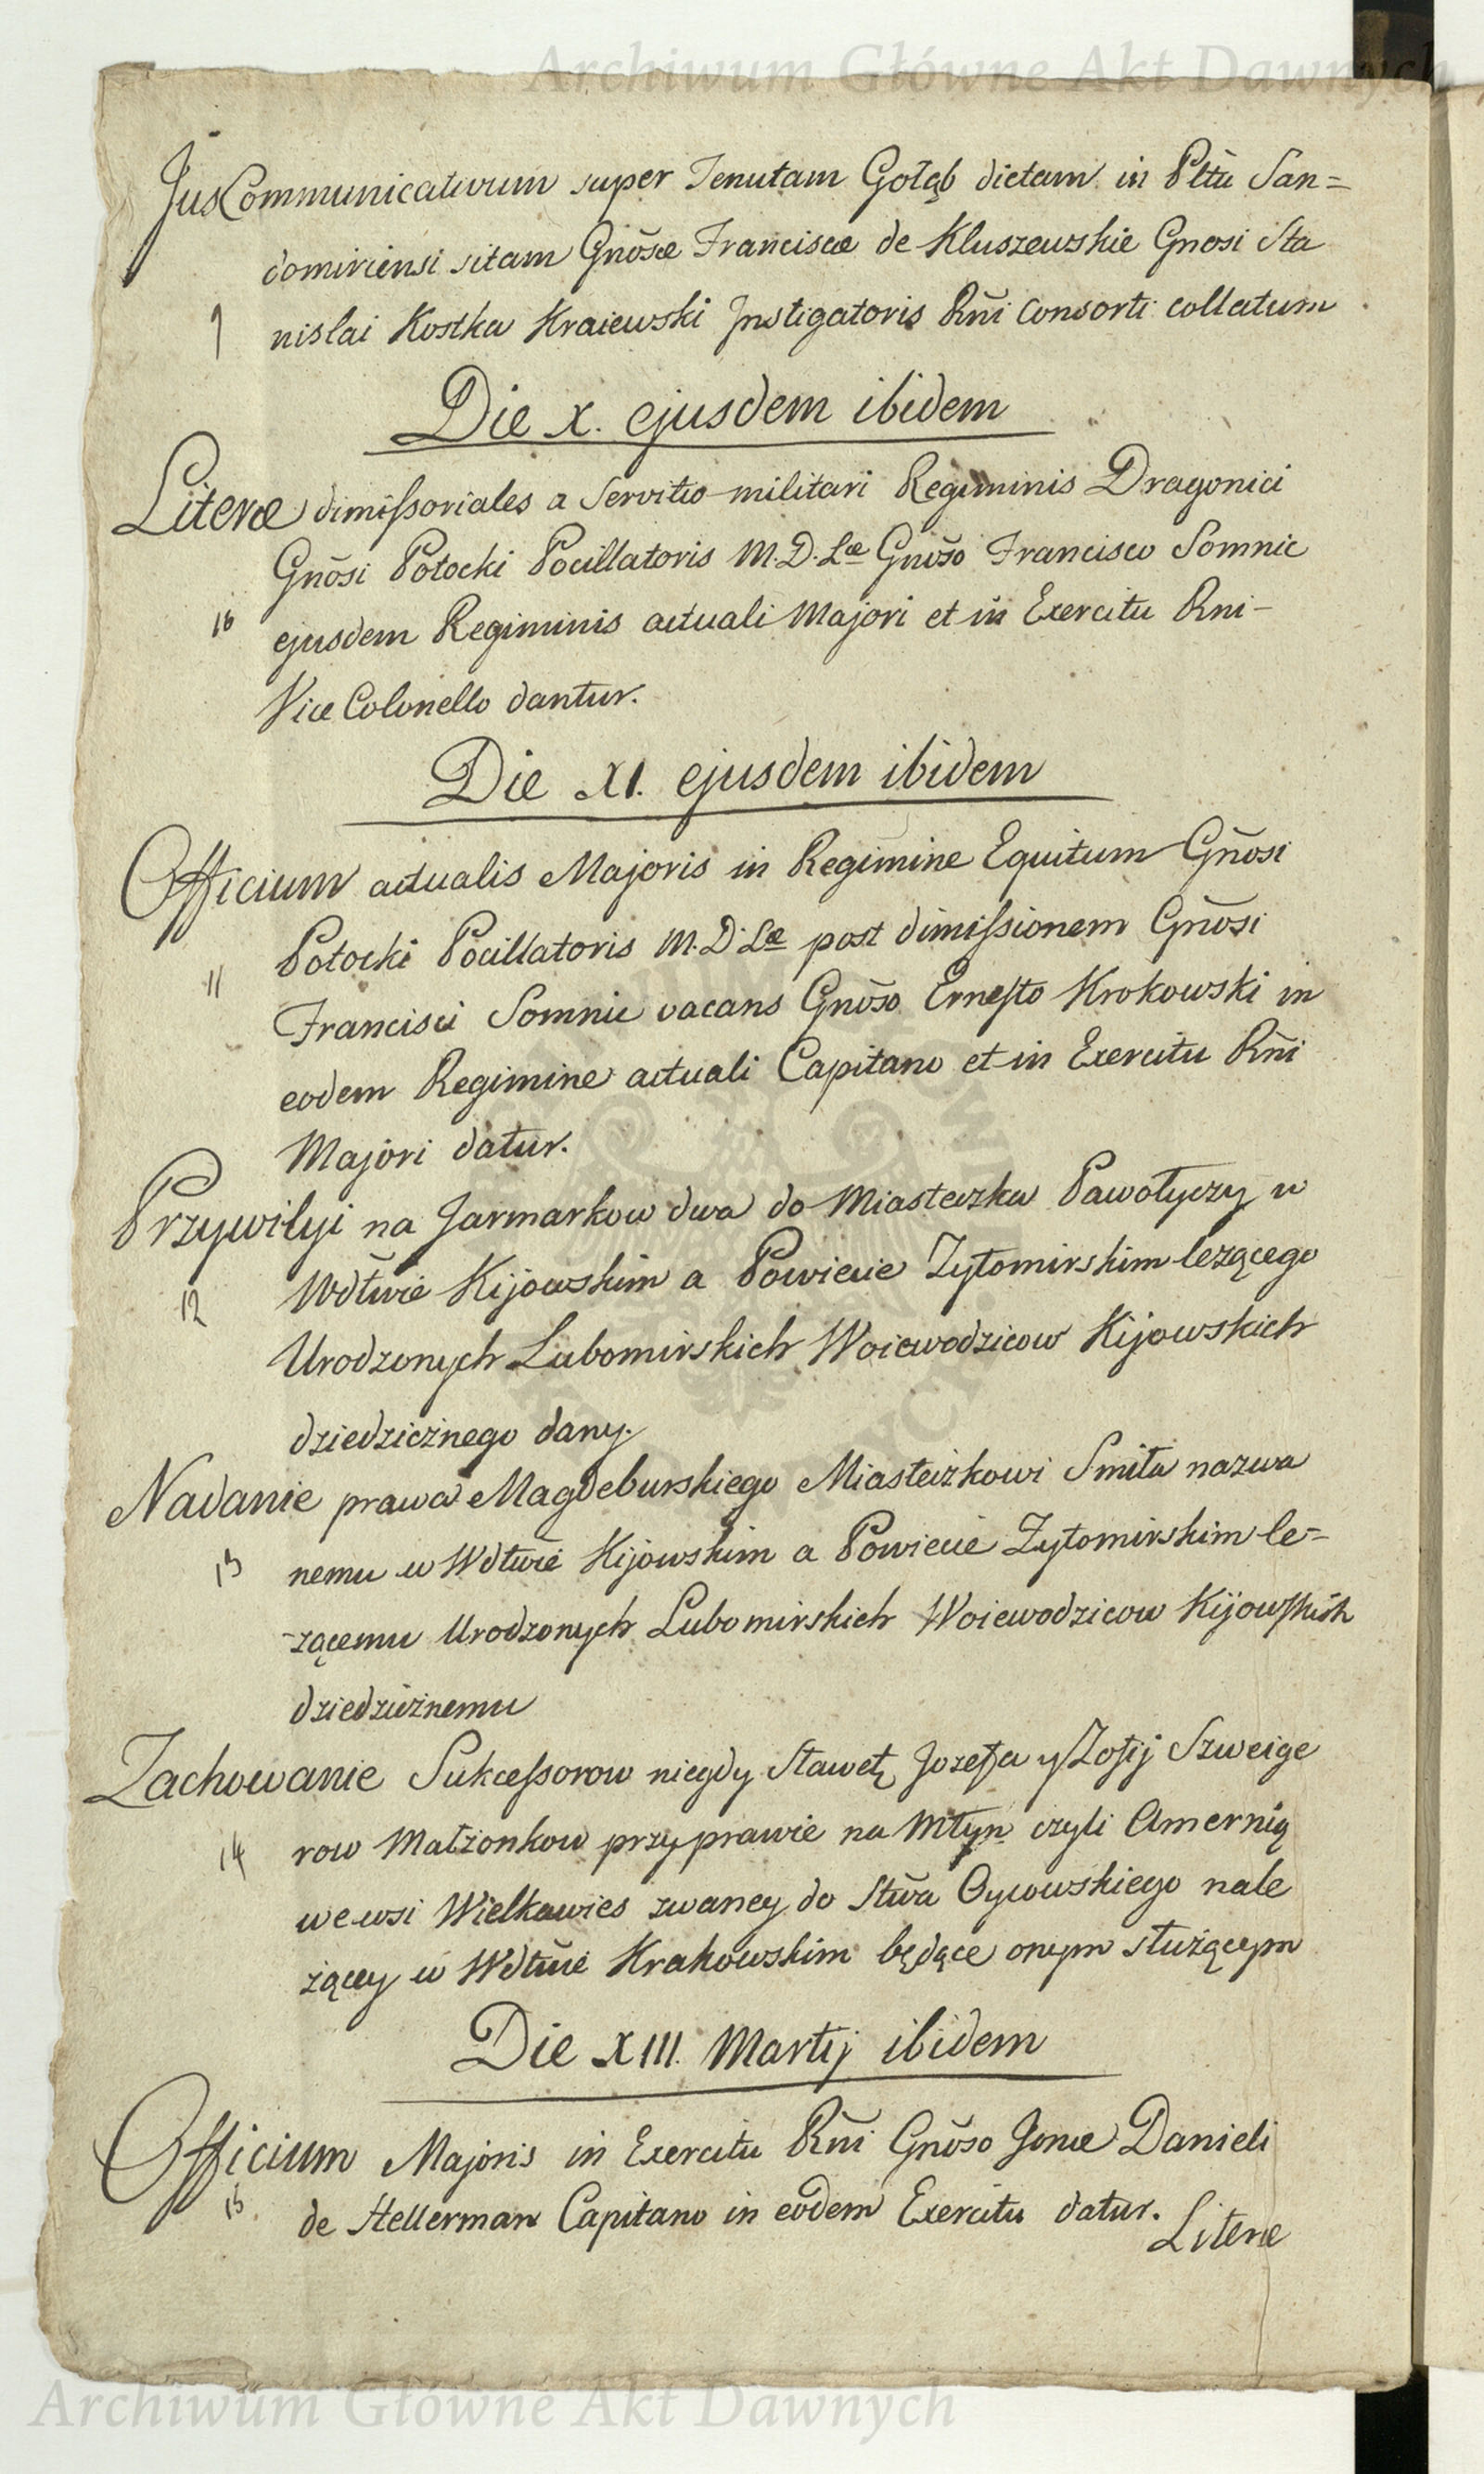 Archiwum Główne Akt Dawnych
Jus Communicativum super Tenutam Gołąb dictam in Pltu San=
domiriensi sitam Gnõsæ Franciscæ de Kluszewskie Gnosi Sta
9 nislai Kostka Kraiewski Instigatoris Rñi Consorti collatum
Die X. ejusdem ibidem
Literæ dimissoriales a Servitio militari Regiminis Dragonici
Gnõsi Potocki Pocillatoris M.D.Læ Gnõso Francisco Somnic
10 ejusdem Regiminis actuali Majori et in Exercitu Rni-
Vice Colonello dantur.
Die XI. ejusdem ibidem
Officium actualis Majoris in Regimine Equitum Gñosi
11 Potocki Pocillatoris M.D.Læ post dimissionem Gñosi
Francisci Somnic vacans Gnõso Ernesto Krokowski in
eodem Regimine actuali Capitano et in Exercitu Rñi
Majori datur.
Przywilyi na Jarmarkow dwa do Miasteczka Pawołyczy w
12 Wdtwie Kijowskim a Powiecie Zytomirskim lezącego
Urodzonych Lubomirskich Woiewodzicow Kijowskich
dziedzicznego dany.
Nadanie prawa Magdeburskiego Miasteczkowi Smiła nazwa
13 nemu w Wdtwie Kijowskim a Powiecie Zytomirskim le=
zącemu Urodzonych Lubomirskich Woiewodzicow Kijowskich
dziedzicznemu
Zachowanie Sukcessorow niegdy Sławetę Jozefa y Zofij Szweige
14 row Małżonkow przy prawie na Młyn czyli Amernią
we wsi Wielkawies zwaney do Stwa Oycowskiego nale
żącey w Wdtwie Krakowskim będące onym służącym
Die XIII. Martij ibidem
Officium Majoris in Exercitu Rñi Gnõso Jonæ Danieli
15 de Hellerman Capitano in eodem Exercitu datur.
Literæ
Archiwum Główne Akt Dawnych